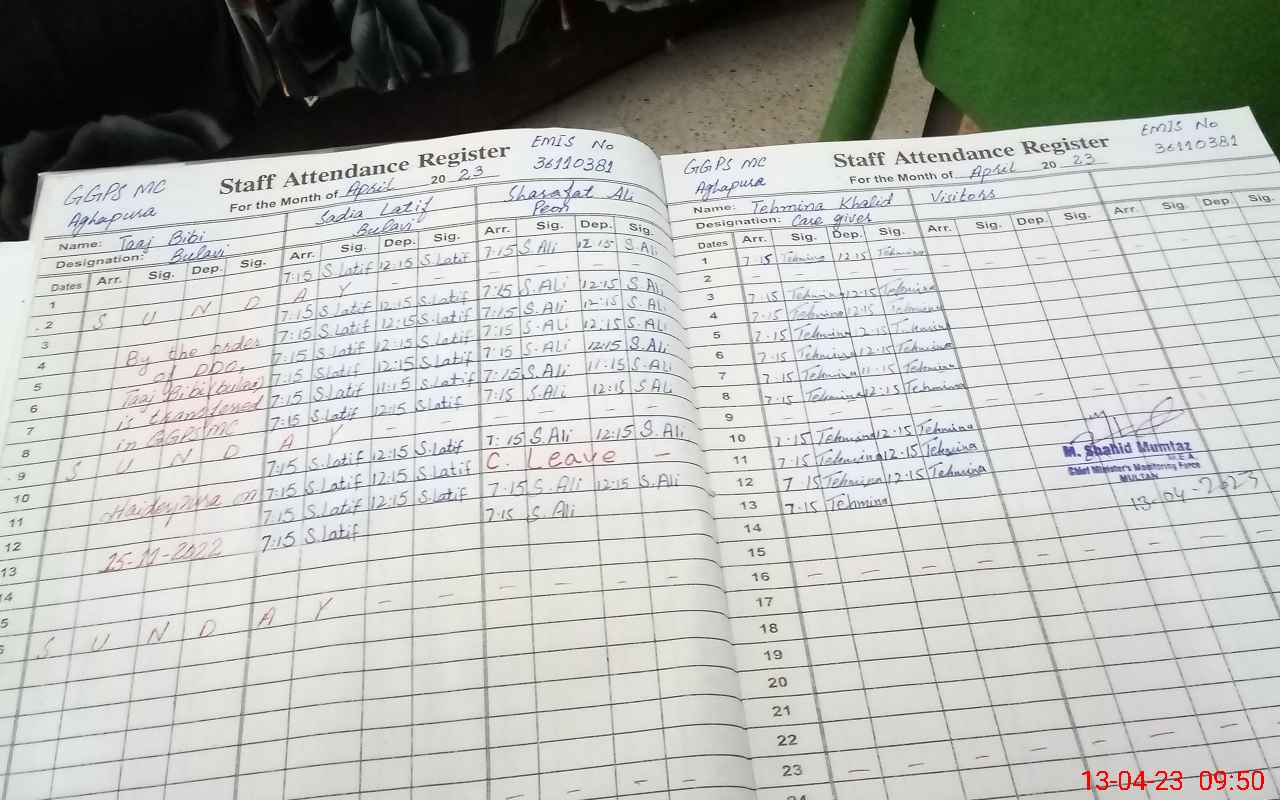 GGPS MC
Aghapura
Staff Attendance Register
EMIS No
36110381
For the Month of April 20 23
Name: Taaj Bibi
Sadia Latif
Sharafat Ali
Designation: Bulavi
Bulavi
Peon
Dates Arr. Sig. Dep. Sig. Arr. Sig. Dep. Sig. Arr. Sig. Dep. Sig.
1 7:15 S.latif 12:15 S.latif 7:15 S.Ali 12:15 S.Ali
2 S U N D A Y - - - - - -
3 7:15 S.latif 12:15 S.latif 7:15 S.Ali 12:15 S.Ali
4 By the order 7:15 S.latif 12:15 S.latif 7:15 S.Ali 12:15 S.Ali
5 of DDO, 7:15 S.latif 12:15 S.latif 7:15 S.Ali 12:15 S.Ali
6 Taaj Bibi (bulavi) 7:15 S.latif 12:15 S.latif 7:15 S.Ali 12:15 S.Ali
7 is transferred 7:15 S.latif 11:15 S.latif 7:15 S.Ali 11:15 S.Ali
8 in GGPS MC 7:15 S.latif 12:15 S.latif 7:15 S.Ali 12:15 S.Ali
9 S U N D A Y - - - - - -
10 Haideypura on 7:15 S.latif 12:15 S.latif 7:15 S.Ali 12:15 S.Ali
11 7:15 S.latif 12:15 S.latif C. Leave -
12 25-11-2022 7:15 S.latif 12:15 S.latif 7:15 S.Ali 12:15 S.Ali
13 7:15 S.latif 7:15 S.Ali
14
5
6 S U N D A Y - - - - - -
GGPS MC
Aghapura
Staff Attendance Register
EMIS No
36110381
For the Month of April 20 23
Name: Tehmina Khalid
Visitors
Designation: Care giver
Dates Arr. Sig. Dep. Sig. Arr. Sig. Dep. Sig. Arr. Sig. Dep. Sig.
1 7:15 Tehmina 12:15 Tehmina
2 - - - -
3 7:15 Tehmina 12:15 Tehmina
4 7:15 Tehmina 12:15 Tehmina
5 7:15 Tehmina 12:15 Tehmina
6 7:15 Tehmina 12:15 Tehmina
7 7:15 Tehmina 11:15 Tehmina
8 7:15 Tehmina 12:15 Tehmina
9 - - - -
10 7:15 Tehmina 12:15 Tehmina
11 7:15 Tehmina 12:15 Tehmina
12 7:15 Tehmina 12:15 Tehmina
13 7:15 Tehmina
14
15
16 - - - -
17
18
19
20
21
22
23 - - - -
24
M. Shahid Mumtaz
M.E.A
Chief Minister's Monitoring Force
MULTAN
13-04-2023
13-04-23 09:50